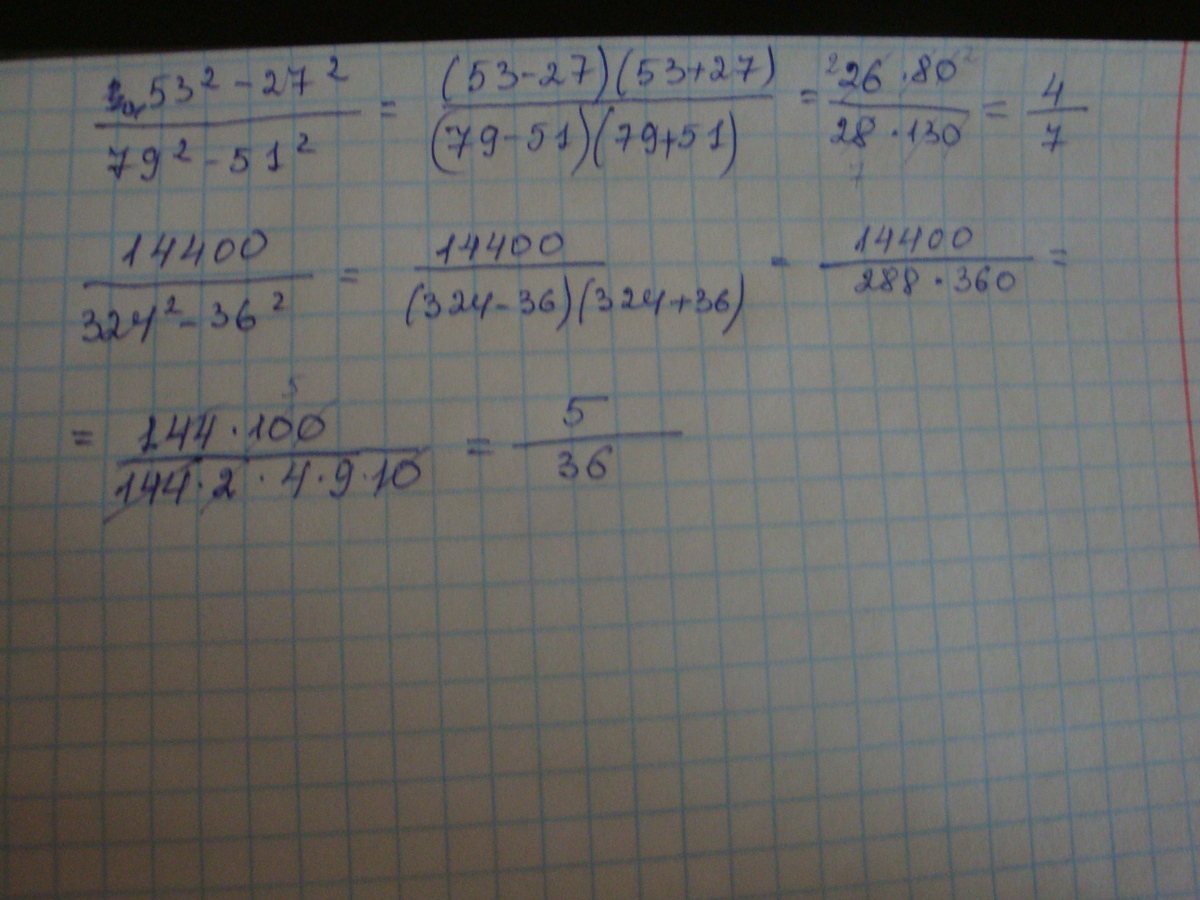 (53² - 27²)/(79² - 51²) = ((53-27)(53+27))/((79-51)(79+51)) = (²26 · 80²)/(28 · 130) = 4/7
7
14400/(324² - 36²) = 14400/((324-36)(324+36)) - 14400/(288 · 360) =
5
= (144 · 100)/(144 · 2 · 4 · 9 · 10) = 5/36